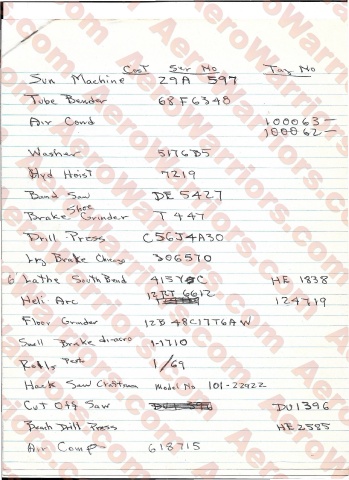 Cost Ser No Tag No
Sun Machine 29A 597
Tube Bender 68F6340
Air Cond 100063-
100062-
Washer 5176B5
Hyd Hoist 7219
Band Saw DE 5427
Brake Shoe Grinder T 447
Drill Press C56J4A30
Lrg Brake Chicago 306570
6' Lathe South Bend 415Y C HE 1838
Heli-Arc RT 6612 124719
Floor Grinder 12B 48C17T6AW
Small Brake di-acro 1-1710
Rolls 1/69
Hack Saw Craftsman Model No 101-22922
Cut Off Saw DU1396
Bench Drill Press HE2585
Air Comp 618715
AeroWarriors.com